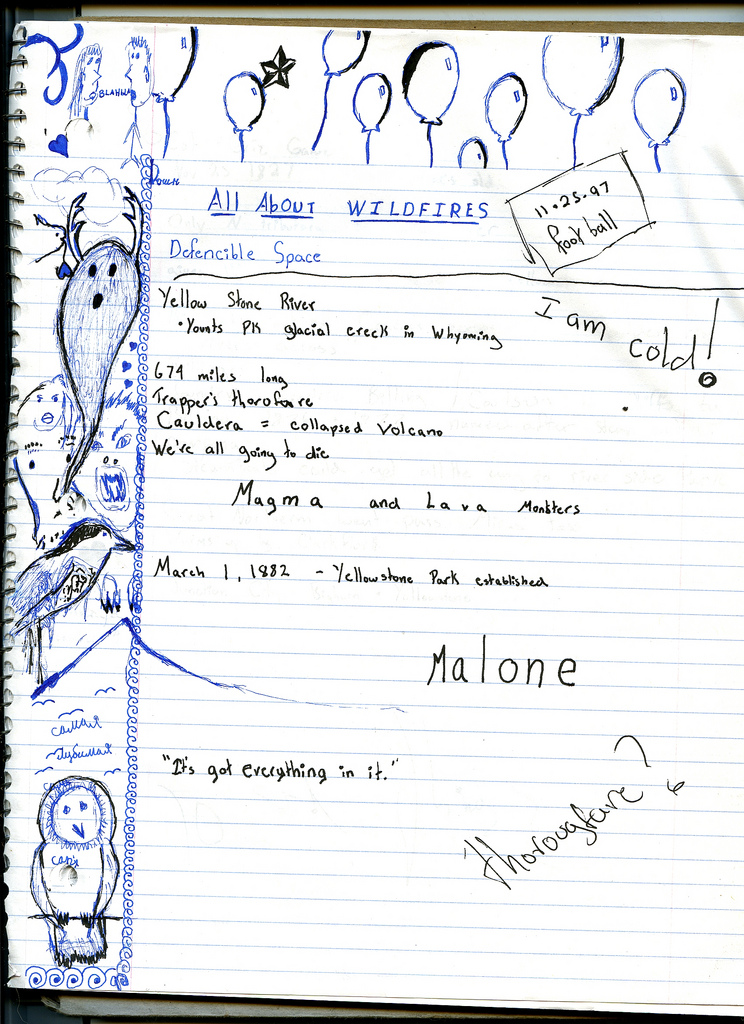 BLAHHA
All About WILDFIRES
11.25.97
football
Defencible Space
I am cold!
Yellow Stone River
• Younts PK glacial creek in Whyoming
674 miles long
Trapper's thorofare
Cauldera = collapsed volcano
We're all going to die
Magma and Lava Monsters
March 1, 1882 - Yellowstone Park established
Malone
самая
Любимая
"It's got everything in it."
thoroughfare?